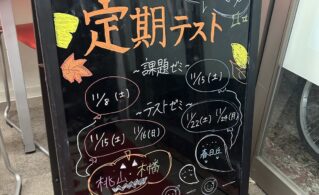 定期テスト
～課題ゼミ～
11/8(土)
11/15(土)
～テストゼミ～
11/15(土) 11/16(日)
11/22(土) 11/24(月)
桃山・木幡
春日丘